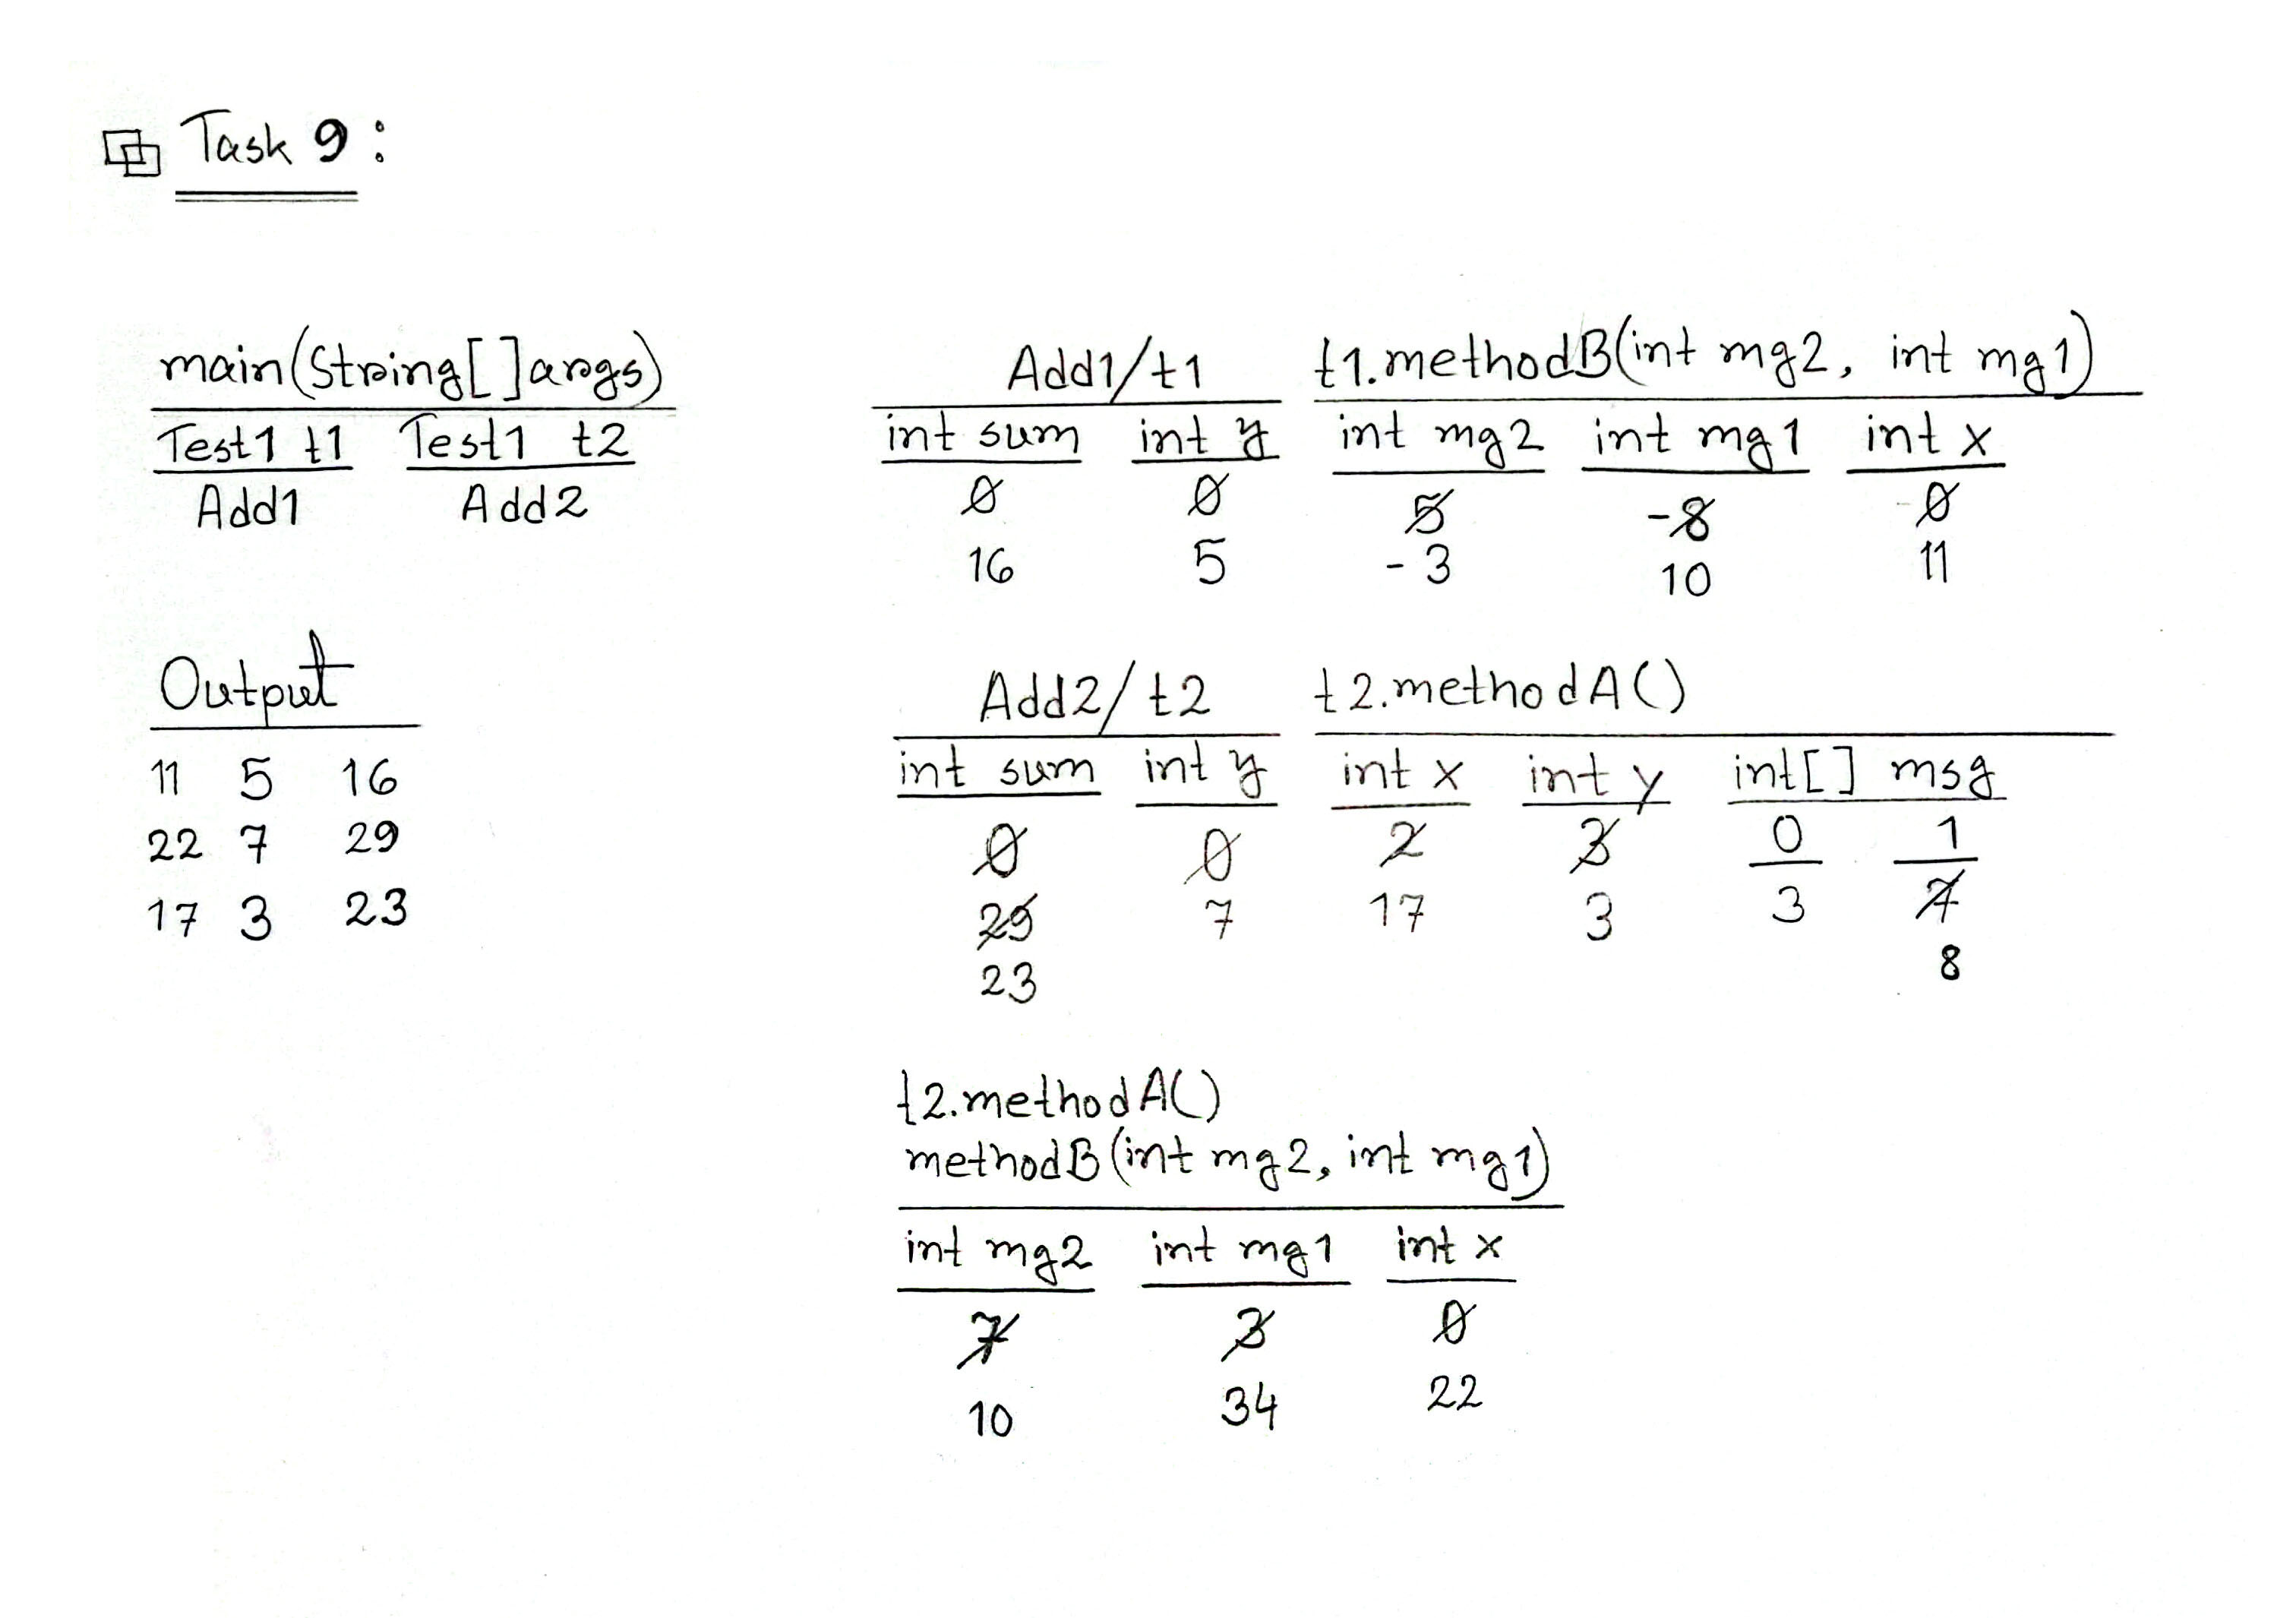 Task 9:
main(String[]args)
Test1 t1 Test1 t2
Add1 Add2
Output
11 5 16
22 7 29
17 3 23
Add1/t1
int sum int y
0 0
16 5
t1.methodB(int mg2, int mg1)
int mg2 int mg1 int x
5 -8 0
-3 10 11
Add2/t2
int sum int y
0 0
29 7
23
t2.methodA()
int x int y int[] msg
2 3 0 1
17 3 3 7
8
t2.methodA()
methodB(int mg2, int mg1)
int mg2 int mg1 int x
7 3 0
10 34 22